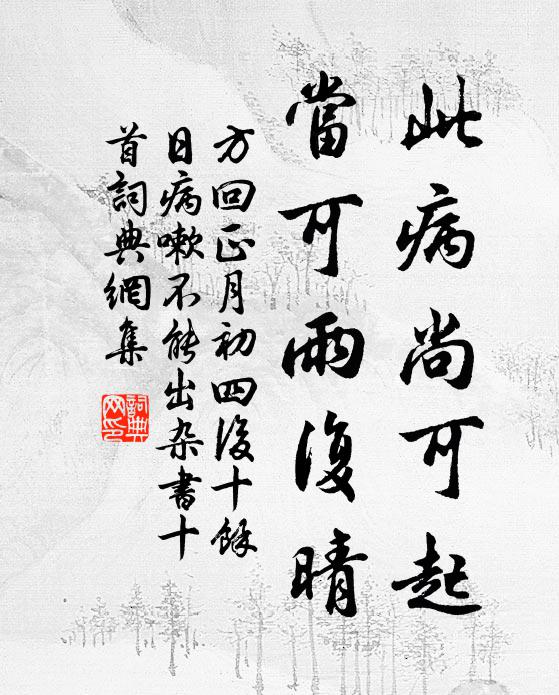 此病尚可起
當可雨復晴
方回正月初四後十餘
日病嗽不能出杂書十
首詞典網集
詞典
网印